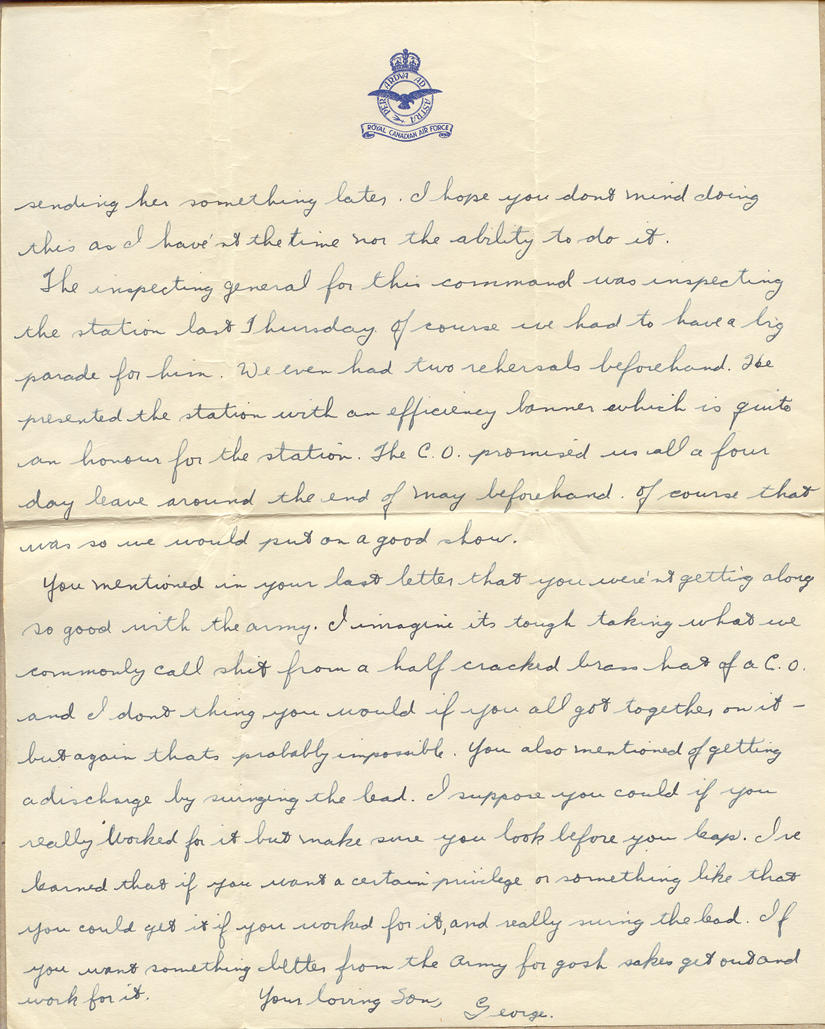 PER ARDVA AD ASTRA
ROYAL CANADIAN AIR FORCE
sending her something later. I hope you dont mind doing
this as I have'nt the time nor the ability to do it.
The inspecting general for this command was inspecting
the station last Thursday. Of course we had to have a big
parade for him. We even had two rehersals beforehand. He
presented the station with an efficiency banner which is quite
an honour for the station. The C.O. promised us all a four
day leave around the end of May beforehand. Of course that
was so we would put on a good show.
You mentioned in your last letter that you were'nt getting along
so good with the army. I imagine its tough taking what we
commonly call shit from a half cracked brass hat of a C.O.
and I dont thing you would if you all got together on it -
but again thats probably impossible. You also mentioned of getting
a discharge by swinging the lead. I suppose you could if you
really worked for it but make sure you look before you leap. I've
learned that if you want a certain privilege or something like that
you could get it if you worked for it, and really swing the lead. If
you want something better from the Army for gosh sakes get out and
work for it. Your loving Son,
George.